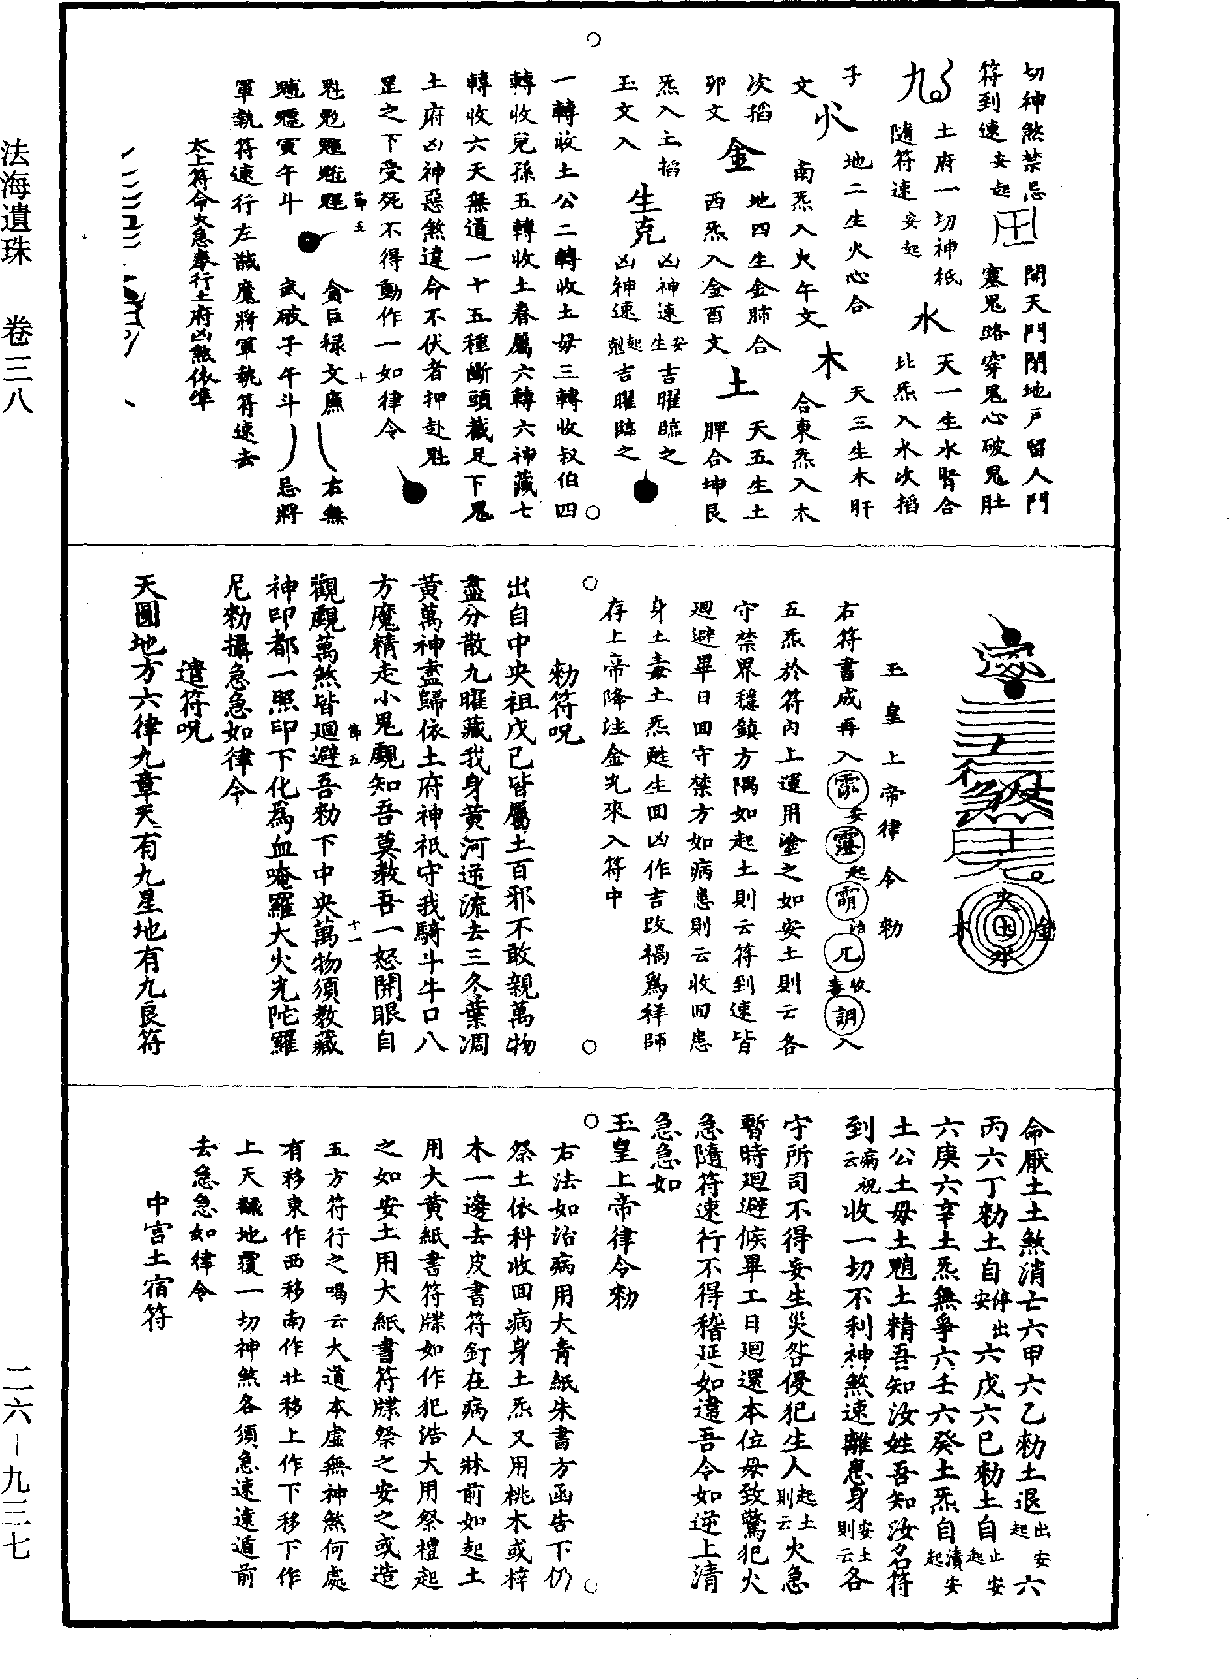 法海遺珠　卷三八
二六－九三七
切神煞禁忌　開天門閉地戶留人門
符到速安起　塞鬼路穿鬼心破鬼肚
土府一切神祇　水　天一生水腎合
九　隨符速安起　北炁入水次搯
子　地二生火心合　天三生木肝
文　火　南炁入火午文　木　合東炁入木
次搯　金　地四生金肺合　土　天五生土
卯文　西炁入金酉文　脾合坤艮
炁入土搯　生　凶神速安生吉曜臨之
玉文入　克　凶神速起剋吉曜臨之
一轉收土公二轉收土母三轉收叔伯四
轉收兒孫五轉收土眷屬六轉六神藏七
轉收六天無道一十五種斷頭截足下鬼
土府凶神惡煞違命不伏者押赴魁
罡之下受死不得動作一如律令
節五　十
寅午斗　貪巨祿文廉　右無
武破子午斗　忌將
軍執符速行左誠魔將軍執符速去
太上符命火急奉行土府凶煞依準
玉皇上帝律令勑
右符書成再入　安　起　治　收毒　入
五炁於符內上運用塗之如安土則云各
守禁界穩鎮方隅如起土則云符到速皆
迴避畢日回守禁方如病患則云收回患
身土毒土炁甦生回凶作吉改禍為祥師
存上帝降注金光來入符中
勑符呪
出自中央祖戊己皆屬土百邪不敢親萬物
盡分散九曜藏我身黃河逆流去三冬葉凋
黃萬神盡歸依土府神祇守我騎斗牛口八
方魔精走小鬼覷知吾莫教吾一怒開眼自
節五　十一
觀覷萬煞皆迴避吾勑下中央萬物須教藏
神印都一照印下化為血唵羅大火光陀羅
尼勑攝急急如律令
遣符呪
天圓地方六律九章天有九星地有九良符
命厭土土煞消亡六甲六乙勑土退出安起六
丙六丁勑土自停出安六戊六己勑土自止安起
六庚六辛土炁無爭六壬六癸土炁自潰安起
土公土母土䰡土精吾知汝姓吾知汝名符
到病祝云收一切不利神煞速離患身安土則云各
守所司不得妄生災咎侵犯生人起土則云火急
暫時迴避候畢工日迴還本位毋致驚犯火
急隨符速行不得稽延如違吾令如逆上清
急急如
玉皇上帝律令勑
右法如治病用大青紙朱書方函告下仍
祭土依科收回病身土炁又用桃木或梓
木一邊去皮書符釘在病人牀前如起土
用大黃紙書符牒如作犯浩大用祭禮起
之如安土用大紙書符牒祭之安之或造
五方符行之喝云大道本虛無神煞何處
有移東作西移南作北移上作下移下作
上天翻地覆一切神煞各須急速遠遁前
去急急如律令
中宮土宿符